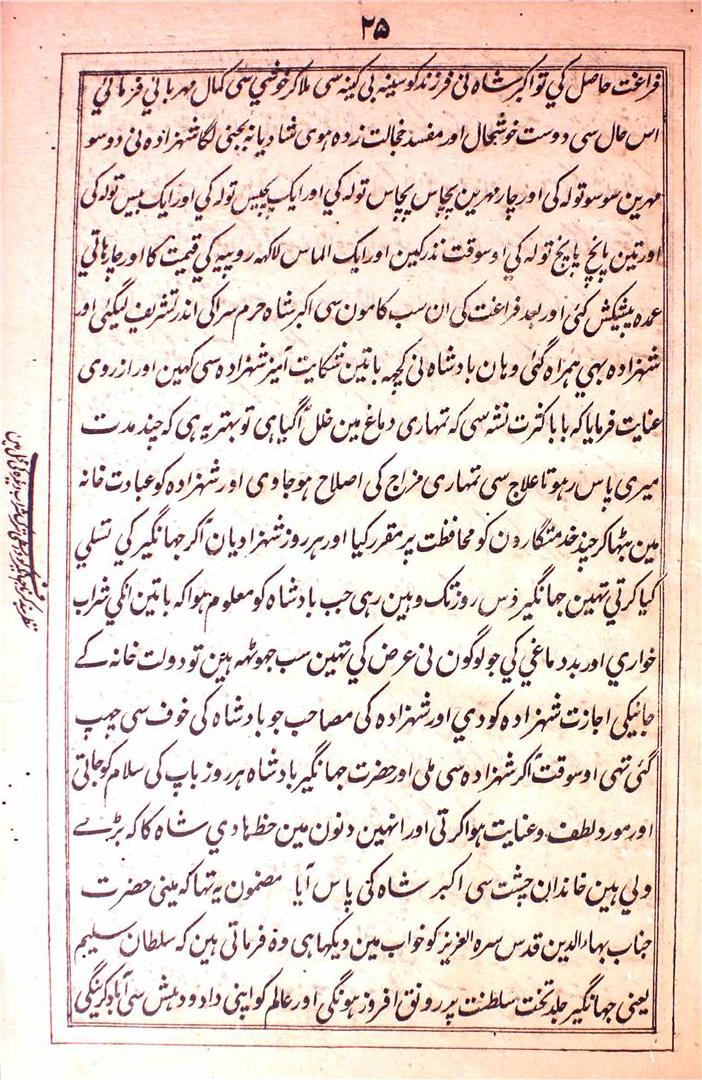 ۲۵
فراغت حاصل کي تو اکبر شاہ ني فرزند کو سینہ بي کینہ سي ملا کر خوشي سي کمال مہرباني فرمائي
اس حال سي دوست خوشحال اور مفسد خجالت زدہ ہوی شادیانہ بجني لگا شہزادہ ني دو سو
مہرین سو سو تولہ کی اور چار مہرین پچاس پچاس تولہ کي اور ایک پچیس تولہ کي اور ایک بیس تولہ کی
اور تین پانچ پانچ تولہ کي اوسوقت نذر کین اور ایک الماس لاکہہ روپیہ کي قیمت کا اور چار ہاتي
عمدہ پیشکش کئی اور بعد فراغت کی ان سب کامون سی اکبر شاہ حرم سرا کی اندر تشریف لیگئی اور
شہزادہ بھي ہمراہ گئی وہان بادشاہ ني کچہہ باتین شکایت آمیز شہزادہ سی کہین اور از روی
عنایت فرمایا کہ بابا کثرت نشہ سی کہ تمہاری دماغ مین خلل آگیا ہی تو بہتر یہ ہی کہ چند مدت
میری پاس رہو تا علاج سی تمہاری مزاج کی اصلاح ہو جاوی اور شہزادہ کو عبادت خانہ
مین بٹہا کر چند خدمتگارون کو محافظت پر مقرر کیا اور ہر روز شہزادیان آکر جہانگیر کي تسلي
کیا کرتي تہین جہانگیر دس روز تک وہین رہی جب بادشاہ کو معلوم ہوا کہ باتین انکي شراب
خواري اور بد دماغي کي جو لوگون نی عرض کي تہین سب جہوٹہہ ہین تو دولت خانہ کے
جانیکی اجازت شہزادہ کو دي اور شہزادہ کی مصاحب جو بادشاہ کی خوف سی چہپ
گئی تہی اوسوقت آکر شہزادہ سی ملی اور حضرت جہانگیر بادشاہ ہر روز باپ کی سلام کو جاتی
اور مورد لطف و عنایت ہوا کرتی اور انہین دنون مین خط ہادي شاہ کا کہ بڑے
ولی ہین خاندان چشت سی اکبر شاہ کی پاس آیا مضمون یہ تہا کہ میني حضرت
جناب بہاءالدین قدس سرہ العزیز کو خواب مین دیکہا ہی وہ فرماتی ہین کہ سلطان سلیم
یعني جہانگیر جلد تخت سلطنت پر رونق افروز ہونگی اور عالم کو اپنی داد و دہش سی آباد کرینگی